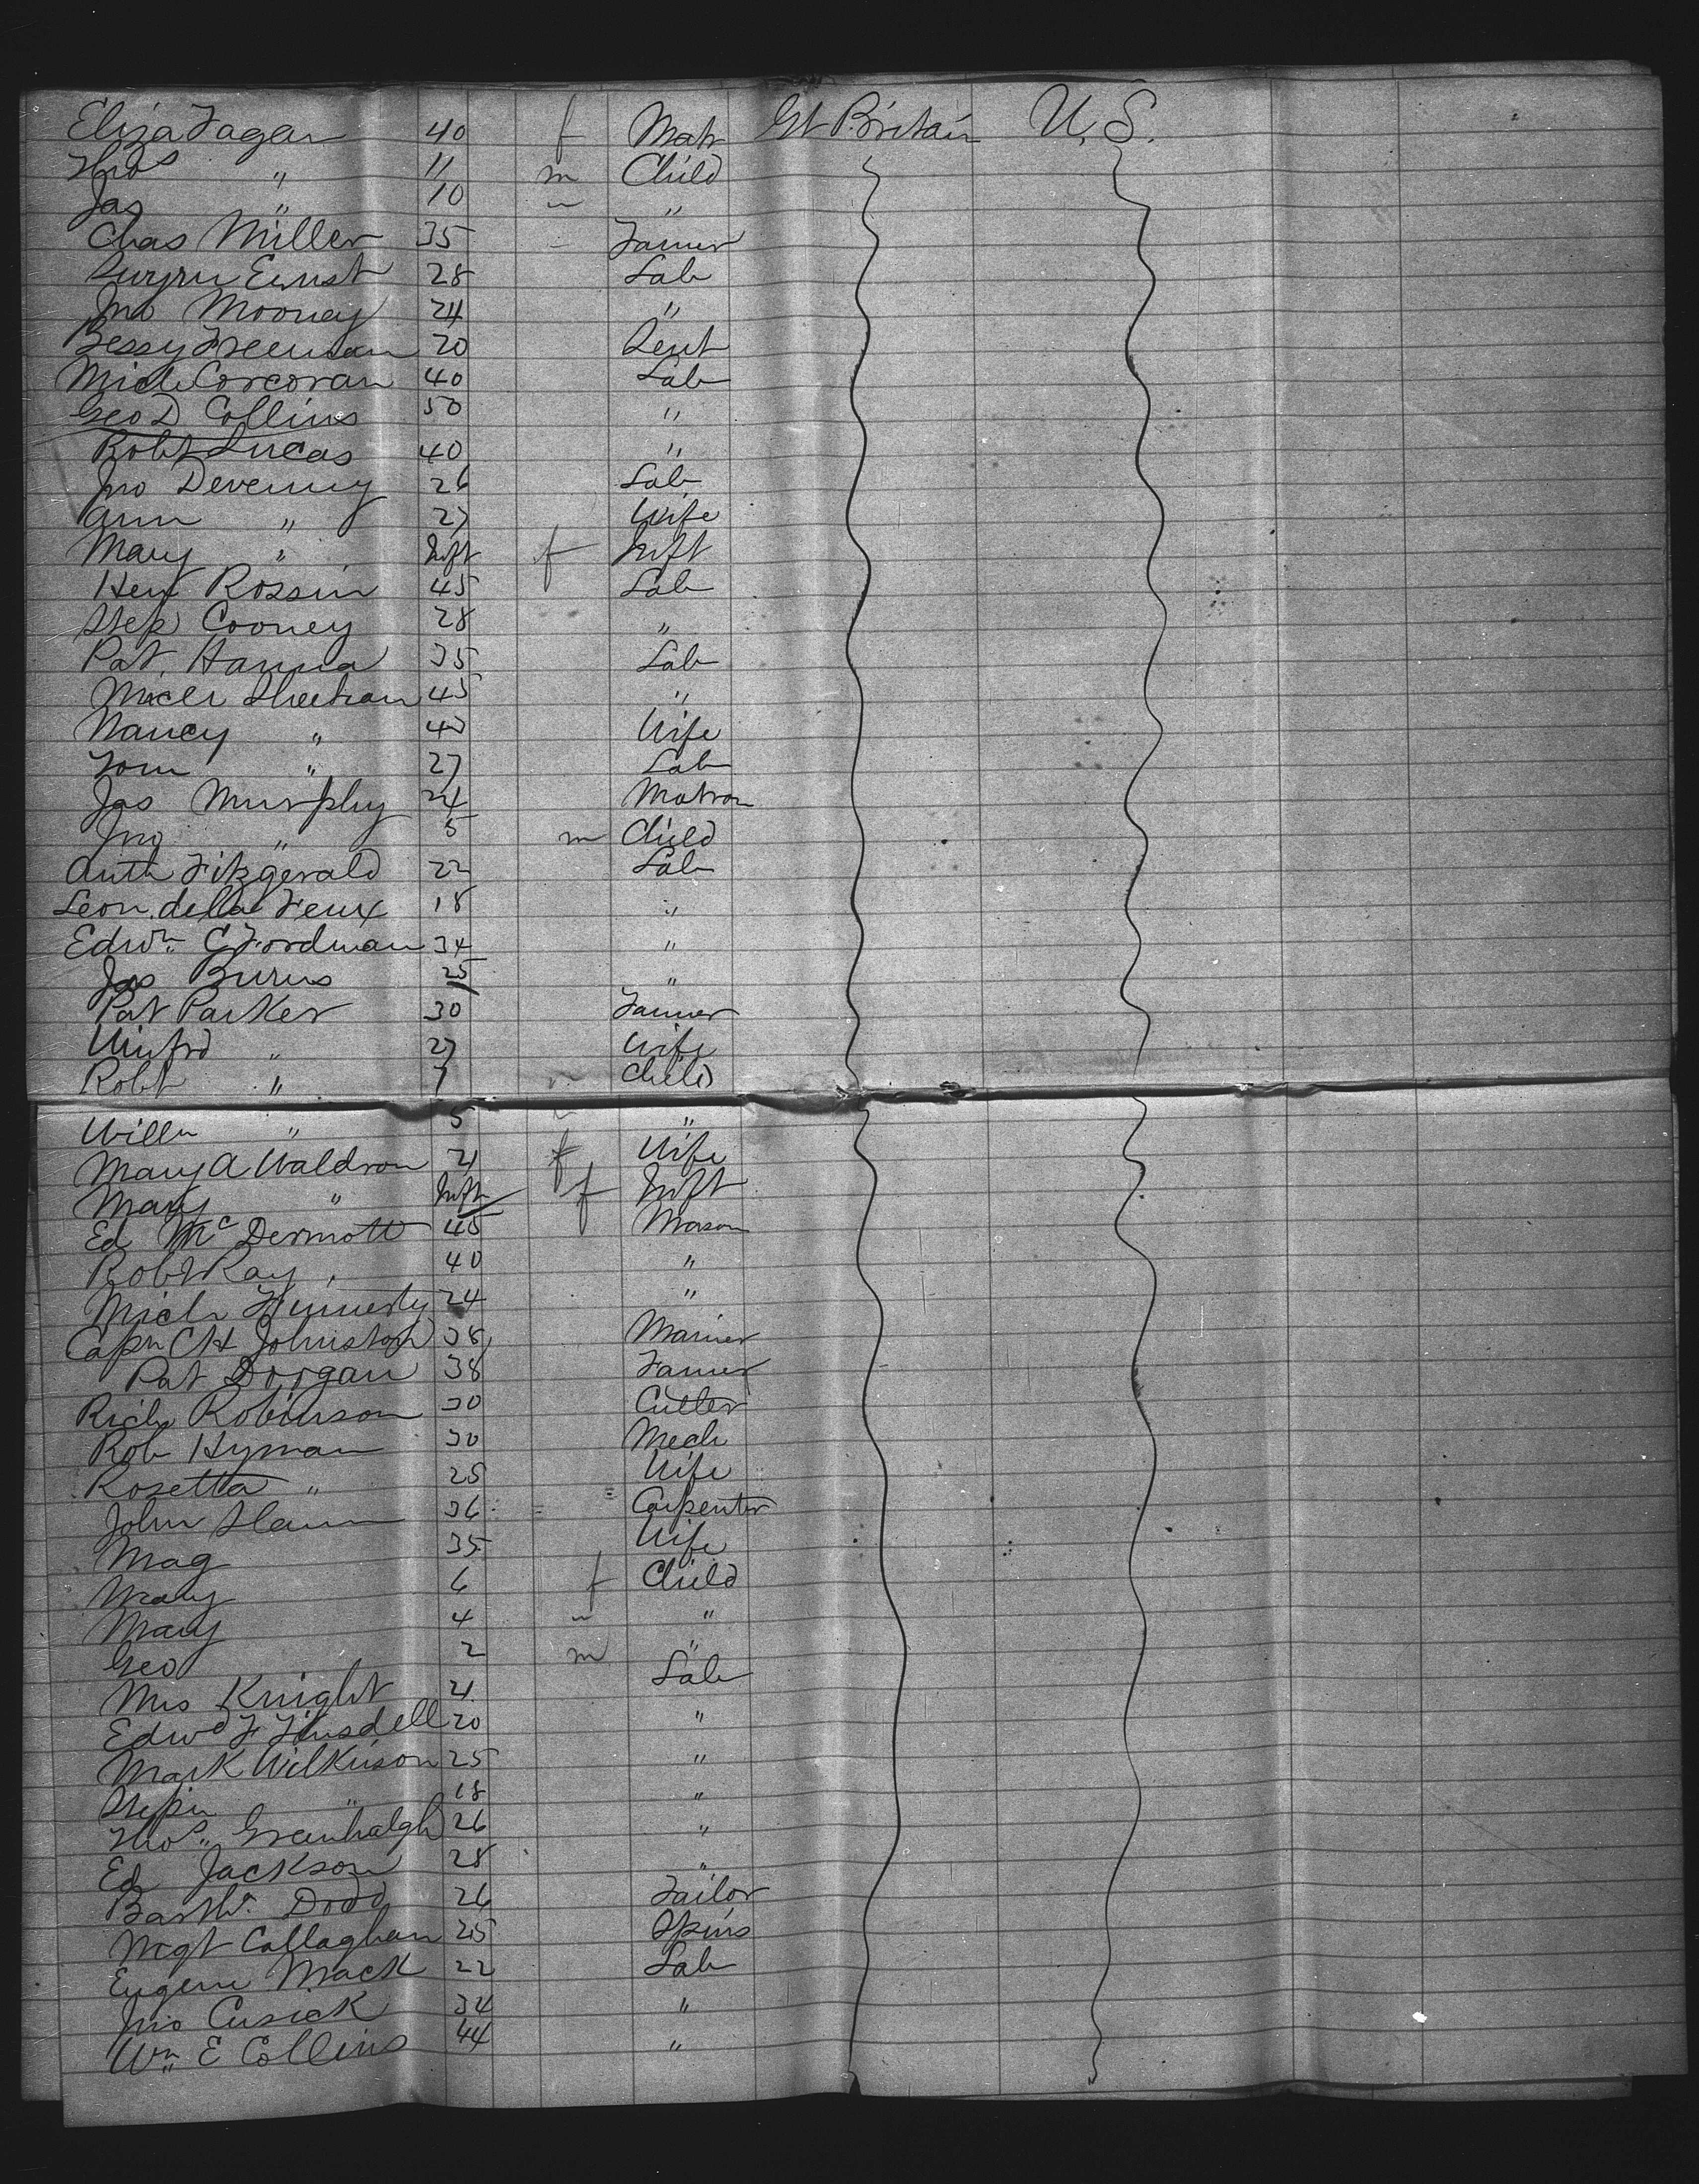 Eliza Fagan 40 f Matr Gt Britain U.S.
Thos " 11 m Child
Jas " 10 " "
Chas Miller 35 " Farmer
Ernst 28 Lab
Jno Mooney 24 "
Bessy Freeman 20
Mich Corcoran 40 Lab
Geo D Collins 50 "
Robt Lucas 40 "
Jno Devenny 26 Lab
Ann " 27 Wife
Mary " Inft f Inft
Hen Rossin 45 Lab
Step Cooney 28 "
Pat Hanna 35 Lab
Mich Sheehan 45 "
Nancy " 40 Wife
Tom " 27 Lab
Jas Murphy 24 Matron
Jno " 5 m Child
Anth Fitzgerald 22 Lab
Leon della 18 "
Edwn C Fordman 34 "
Jas Burns 25 "
Pat Parker 30 Farmer
Winfrd " 27 Wife
Robt " 7 m Child
Willm " 5 " "
Mary A Waldron 21 f Wife
Mary " Inft f Inft
Ed McDermott 45 Mason
Robt Ray 40 "
Mich 24 "
Capn CH Johnston 38 Mariner
Pat Dorgan 38 Farmer
Rich Robinson 30 Cutter
Rob Hyman 30 Mech
Rosetta " 25 Wife
John 36 Carpenter
Mag 35 Wife
Mary 6 f Child
Mary 4 " "
Geo 2 m "
Mrs Knight 21 Lab
Edwd F Tinsdell 20 "
Mark Wilkinson 25 "
Stepn " 18 "
Thos Greenhalgh 26 "
Ed Jackson 28 "
Barthw Dodd 26 Tailor
Mgt Callaghan 25 Spins
Eugene Mack 22 Lab
Jno Cusick 34 "
Wm E Collins 44 "